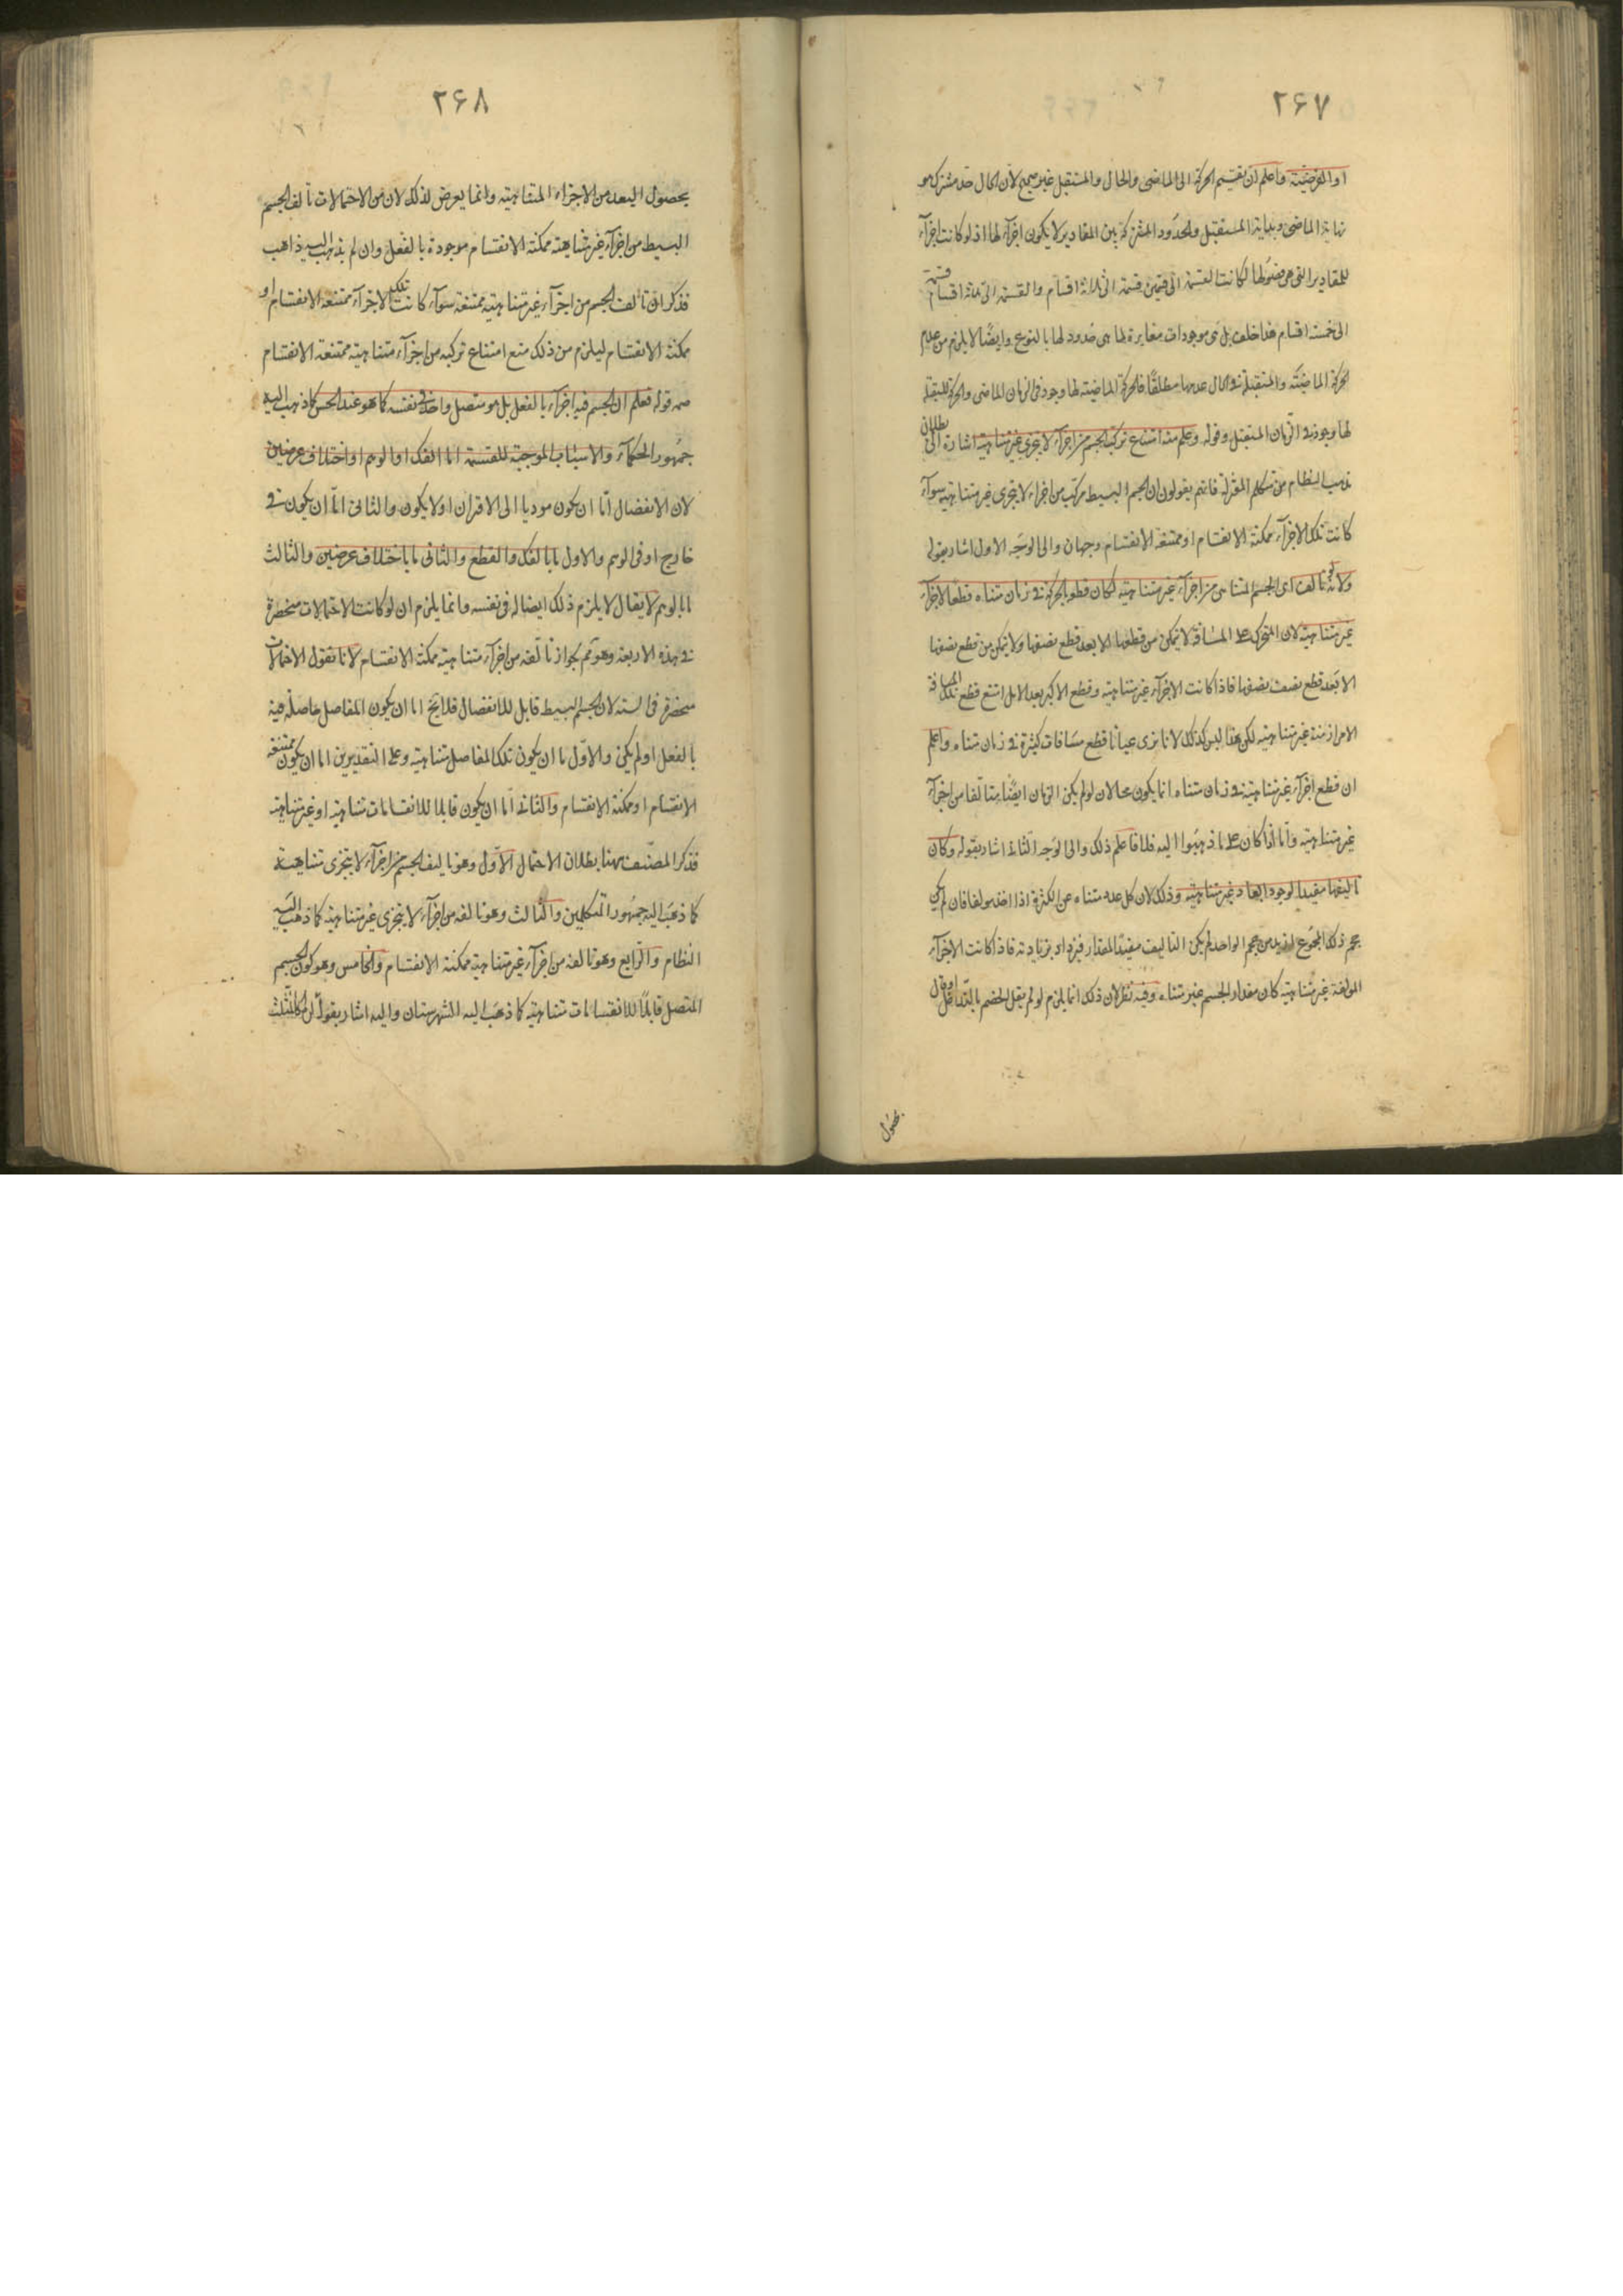 ۲۶۷
او الفرضیته واعلم ان تقسیم الحرکة الی الماضی والحال والمستقبل غیر صحیح لان الحال حد مشترک هو
نهایة الماضی وبدایة المستقبل والحدود المشترکة بین المقادیر لا یکون اجزآء لها اذ لو کانت اجزآء
للمقادیر التی هی حدود لها لکانت القسمة الی قسمین قسمة الی ثلاثة اقسام والقسمة الی ثلاثة اقسام قسمة
الی خمسة اقسام هذا خلف بل هی موجودات مغایرة لما هی حدود لها بالنوع وایضًا لا یلزم من عدم
الحرکة الماضیّة والمستقبلة فی الحال عدمها مطلقًا فالحرکة الماضیته لها وجود فی الزمان الماضی والحرکة المستقبلة
لها وجود فی الزمان المستقبل وقوله وعلم منه امتناع ترکیب الجسم من اجزآء لا یتجزی غیر متناهیة اشارة الی بطلان
مذهب النظام من متکلم المعتزلة فانهم یقولون ان الجسم البسیط مرکب من اجزاء لا یتجزی غیر متناهیه سوآء
کانت تلک الاجزآء ممکنة الانقسام او ممتنعة الانقسام وجهان والی الوجه الاول اشار بقوله
ولانه لو تالف ای الجسم المتناهی من اجزآء غیر متناهیة لکان قطع الحرکة فی زمان متناه قطعًا لاجزآء
غیر متناهیة لان المتحرک علی المسافة لا یتمکن من قطعها الا بعد قطع نصفها ولا یتمکن من قطع نصفها
الا بعد قطع نصف نصفها فاذا کانت الاجزآء غیر متناهیه وقطع الاکثر بعد الاقل امتنع قطع تلک المسافة
الا مر ازمنة غیر متناهیه لکن هذا لیس کذلک لانا نری عیانا قطع مسافات کثیرة فی زمان متناه واعلم
ان قطع اجزآء غیر متناهیة فی زمان متناه انما یکون محالا ان لو لم یکن الزمان ایضًا متالفا من اجزآء
غیر متناهیه واما اذا کان علی ما ذهبوا الیه فلا فاعلم ذلک والی الوجه الثانی اشار بقوله وکان
تالیفها مفیدا لوجود ابعاد غیر متناهیة وذلک لان کل عدد متناه من الکثرة اذا اخذ مولفا فان لم یکن
حجم ذلک المجموع ازید من حجم الواحد لم یکن التالیف مفیدًا لمقدار فیزداد بزیادته فاذا کانت الاجزآء
المولفة غیر متناهیة کان مقدار الجسم غیر متناه وفیه نظر لان ذلک انما یلزم لو لم یقل الخصم بالتداخل او قال
بحصول
۲۶۸
بحصول البعد من الاجزاء المتناهیته وانما یعرض لذلک لان من الاحتمالات تالف الجسم
البسیط من اجزآء غیر متناهیة ممکنة الانقسام موجودة بالفعل وان لم یذهب الیه ذاهب
فذکر ان تالف الجسم من اجزآء غیر متناهیه ممتنعة سوآء کانت تلک الاجزآء ممتنعة الانقسام او
ممکنة الانقسام لیلزم من ذلک منع امتناع ترکبه من اجزآء متناهیته ممتنعة الانقسام
قوله فعلم ان الجسم فیه اجزآء بالفعل بل هو متصل واحد فی نفسه کما هو عند الحس کما ذهب الیه
جمهور الحکمآء والاسباب الموجبة للقسمة اما الفک او الوهم او اختلاف عرضین
لان الانفصال اما ان یکون مودیا الی الافتراق او لا یکون والثانی اما ان یکون فی
خارج او فی الوهم والاول ما بالفک والقطع والثانی ما باختلاف عرضین والثالث
ما بالوهم لا یقال لا یلزم ذلک ایضا له فی نفسه وانما یلزم ان لو کانت الاحتمالات منحصرة
فی هذه الاربعة وهو ثم بجواز تالفه من اجزآء متناهیة ممکنة الانقسام لانا نقول الاحتمالات
منحصرة فی الستة لان الجسم البسیط قابل للانفصال فلا یخ اما ان یکون المفاصل حاصلة فیه
بالفعل او لم یکن والاول اما ان یکون تلک المفاصل متناهیة وعلی التقدیرین اما ان یکون ممتنعة
الانقسام او ممکنة الانقسام والثانی اما ان یکون قابلا للانقسامات متناهیة او غیر متناهیه
فذکر المصنف ههنا بطلان الاحتمال الاول وهو تالیف الجسم من اجزآء لا یتجزی متناهیة
کما ذهب الیه جمهور المتکلمین والثالث وهو تالفه من اجزآء لا یتجزی غیر متناهیة کما ذهب الیه
النظام والرابع وهو تالفه من اجزآء غیر متناهیة ممکنة الانقسام والخامس وهو کون الجسم
المتصل قابلًا للانقسامات متناهیة کما ذهب الیه الشهرستان والیه اشار بقوله